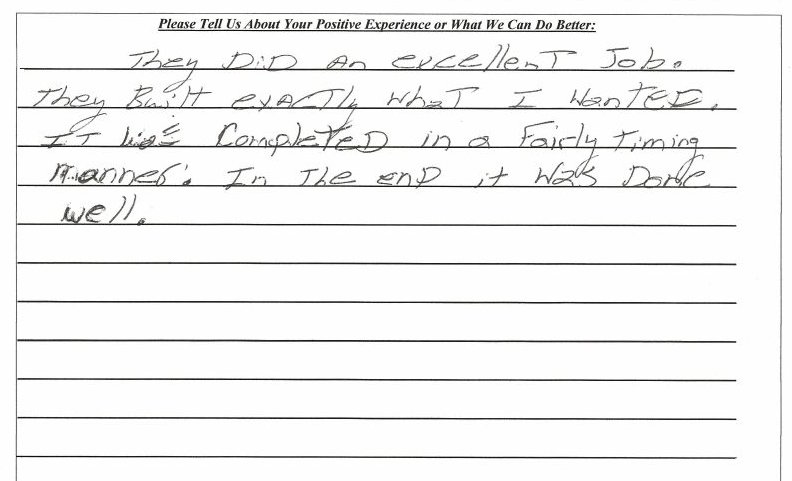 Please Tell Us About Your Positive Experience or What We Can Do Better:
They DiD An excellenT Job.
They BuilT exAcTly whaT I WanTED.
IT was CompleTeD in a Fairly Timing
manner. In The enD it WAs Done
well.